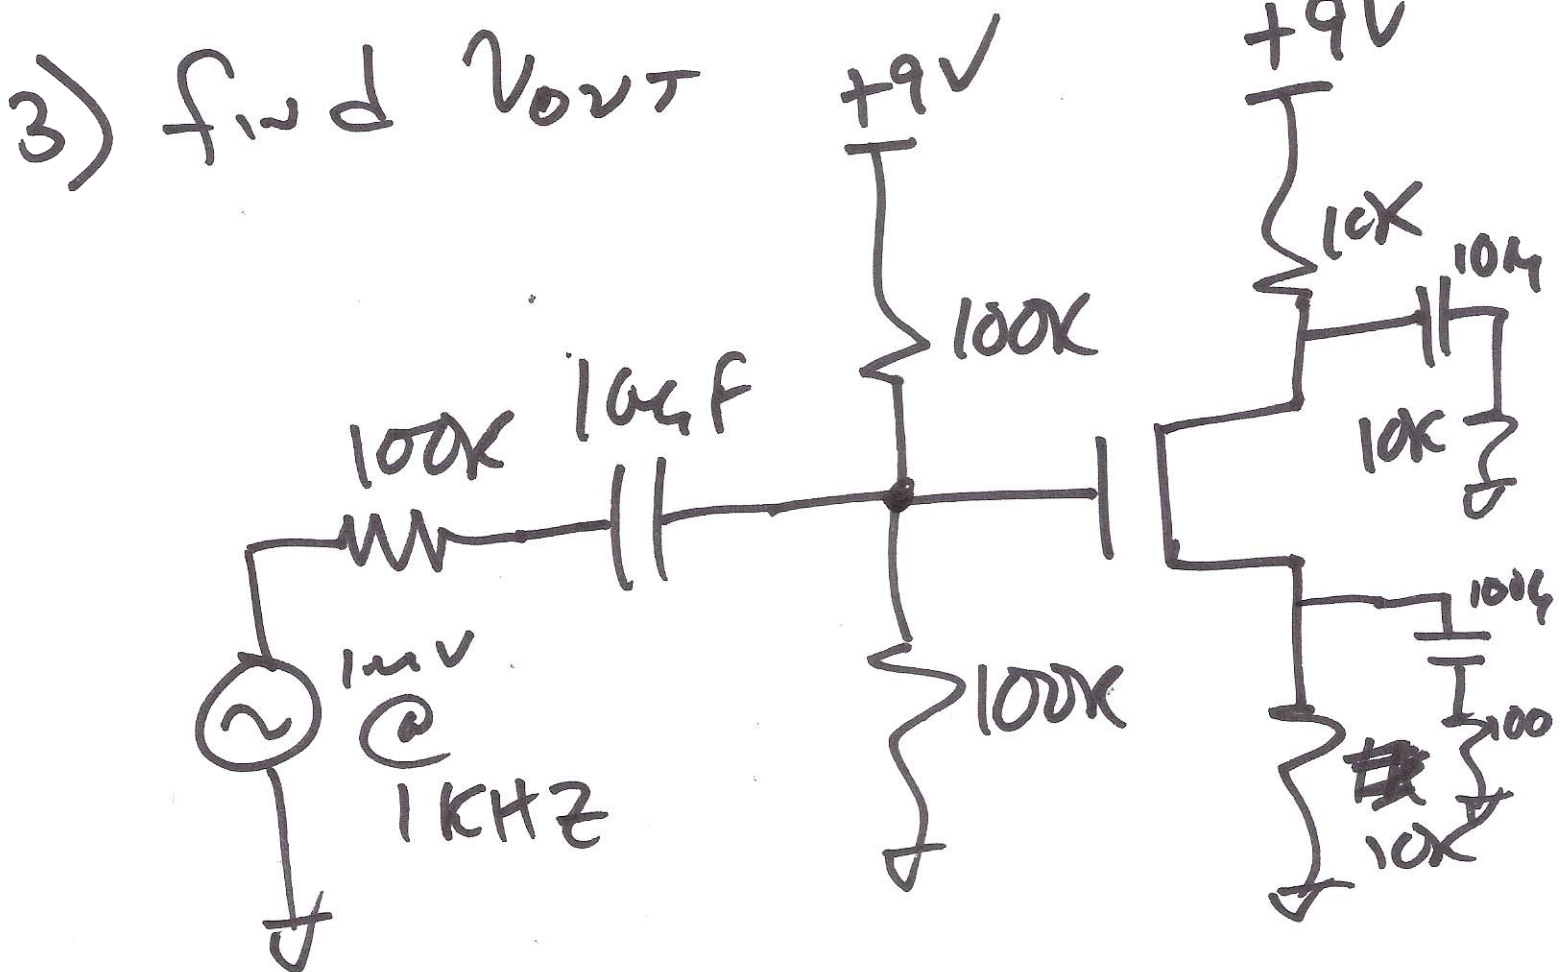 3) find VOUT
+9V
+9V
10K
10μ
100K
10μF
100K
10K
1mV
@
1KHZ
100K
100μ
100
10K